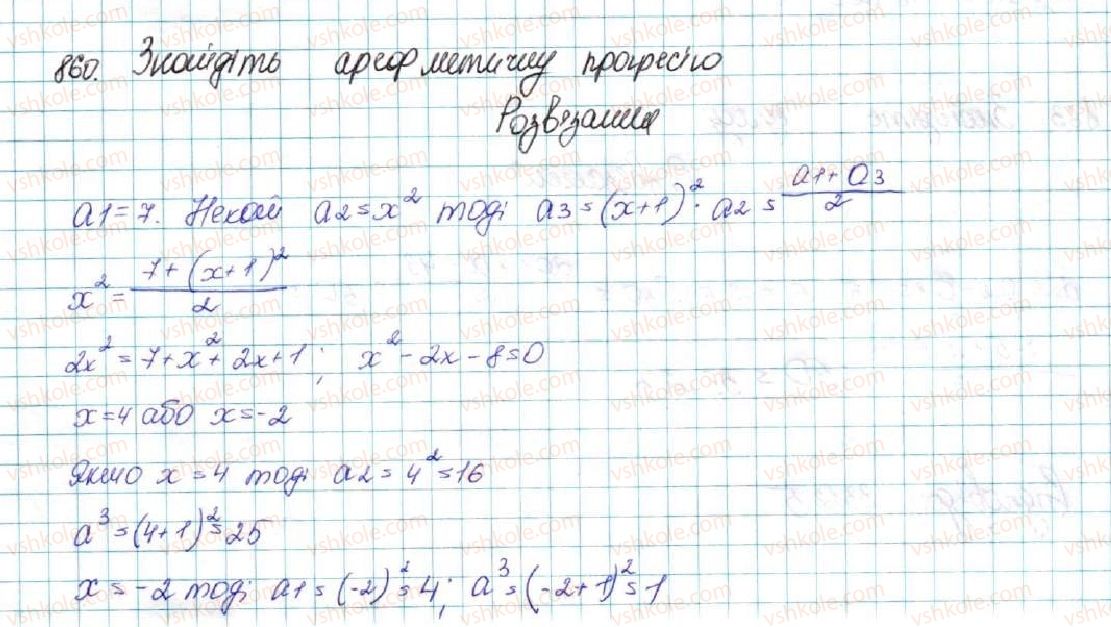 860. Знайдіть арефметичну прогресію
Розвязання
a1 = 7. Нехай a2 = x² тоді a3 = (x+1)². a2 = (a1 + a3)/2
x² = (7 + (x+1)²)/2
2x² = 7 + x² + 2x + 1; x² - 2x - 8 = 0
x = 4 або x = -2
Якшо x = 4 тоді a2 = 4² = 16
a³ = (4+1)² = 25
x = -2 тоді a1 = (-2)² = 4; a³ = (-2+1)² = 1